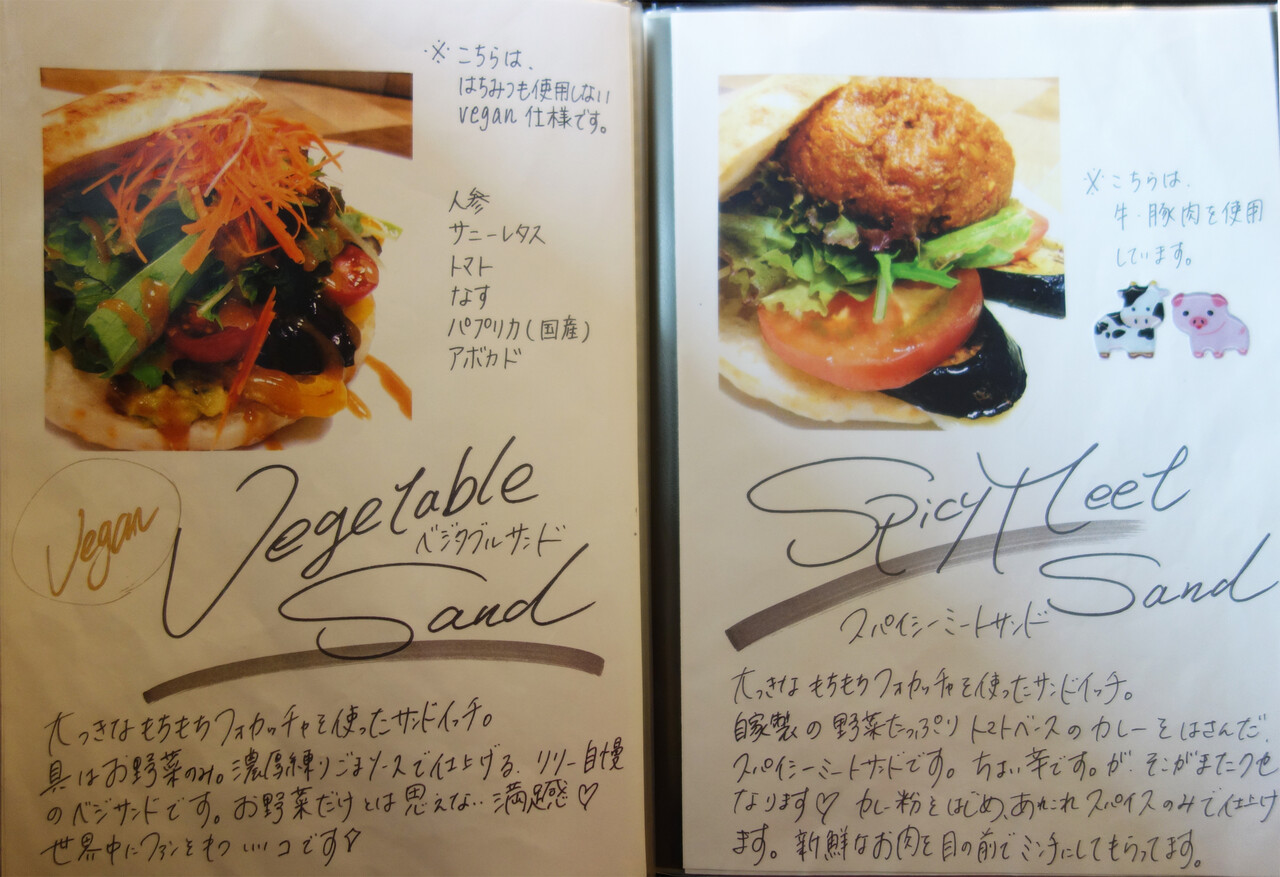 ※こちらは、
はちみつも使用しない
vegan 仕様です。
人参
サニーレタス
トマト
なす
パプリカ(国産)
アボカド
Vegan
Vegetable
ベジタブルサンド
Sand
大っきなもちもちフォカッチャを使ったサンドイッチ。
具はお野菜のみ。濃厚練りごまソースで仕上げる、リリー自慢
のベジサンドです。お野菜だけとは思えない満足感♡
世界中にファンをもついいコです♡
※こちらは、
牛・豚肉を使用
しています。
Spicy Meet
Sand
スパイシーミートサンド
大っきなもちもちフォカッチャを使ったサンドイッチ。
自家製の野菜たっぷりトマトベースのカレーをはさんだ、
スパイシーミートサンドです。ちょい辛です。が、そこがまたクセ
なります♡ カレー粉をはじめ、あれこれスパイスのみで仕上げ
ます。新鮮なお肉を目の前でミンチにしてもらってます。